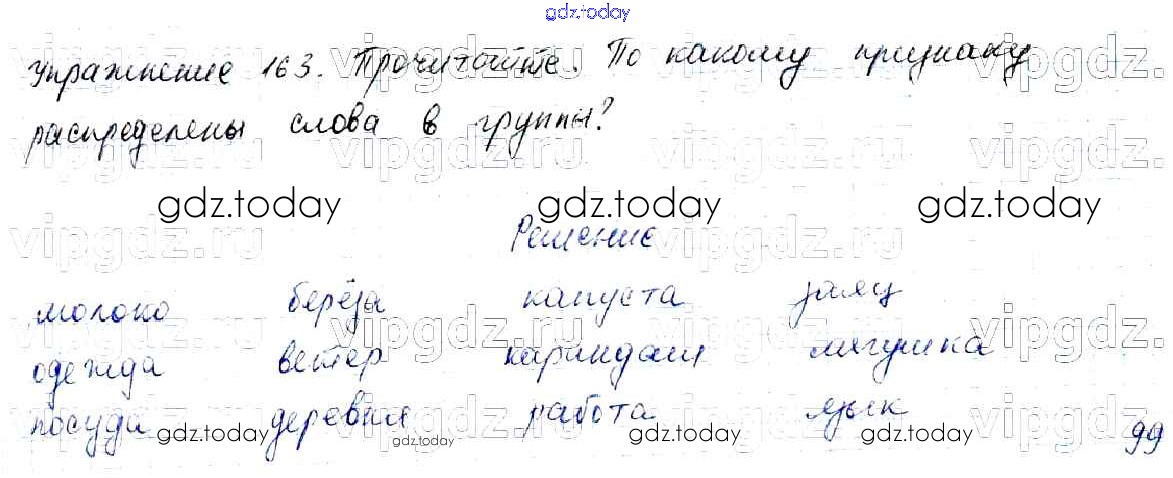 gdz.today
Упражнение 163. Прочитайте. По какому признаку
распределены слова в группы?
vipgdz.ru vipgdz.ru vipgdz.ru vipgdz.
gdz.today gdz.today gdz.today
Решение
молоко берёза капуста заяц
одежда ветер карандаш лягушка
посуда деревня работа язык
gdz.today gdz.today gdz.today gdz.today
99